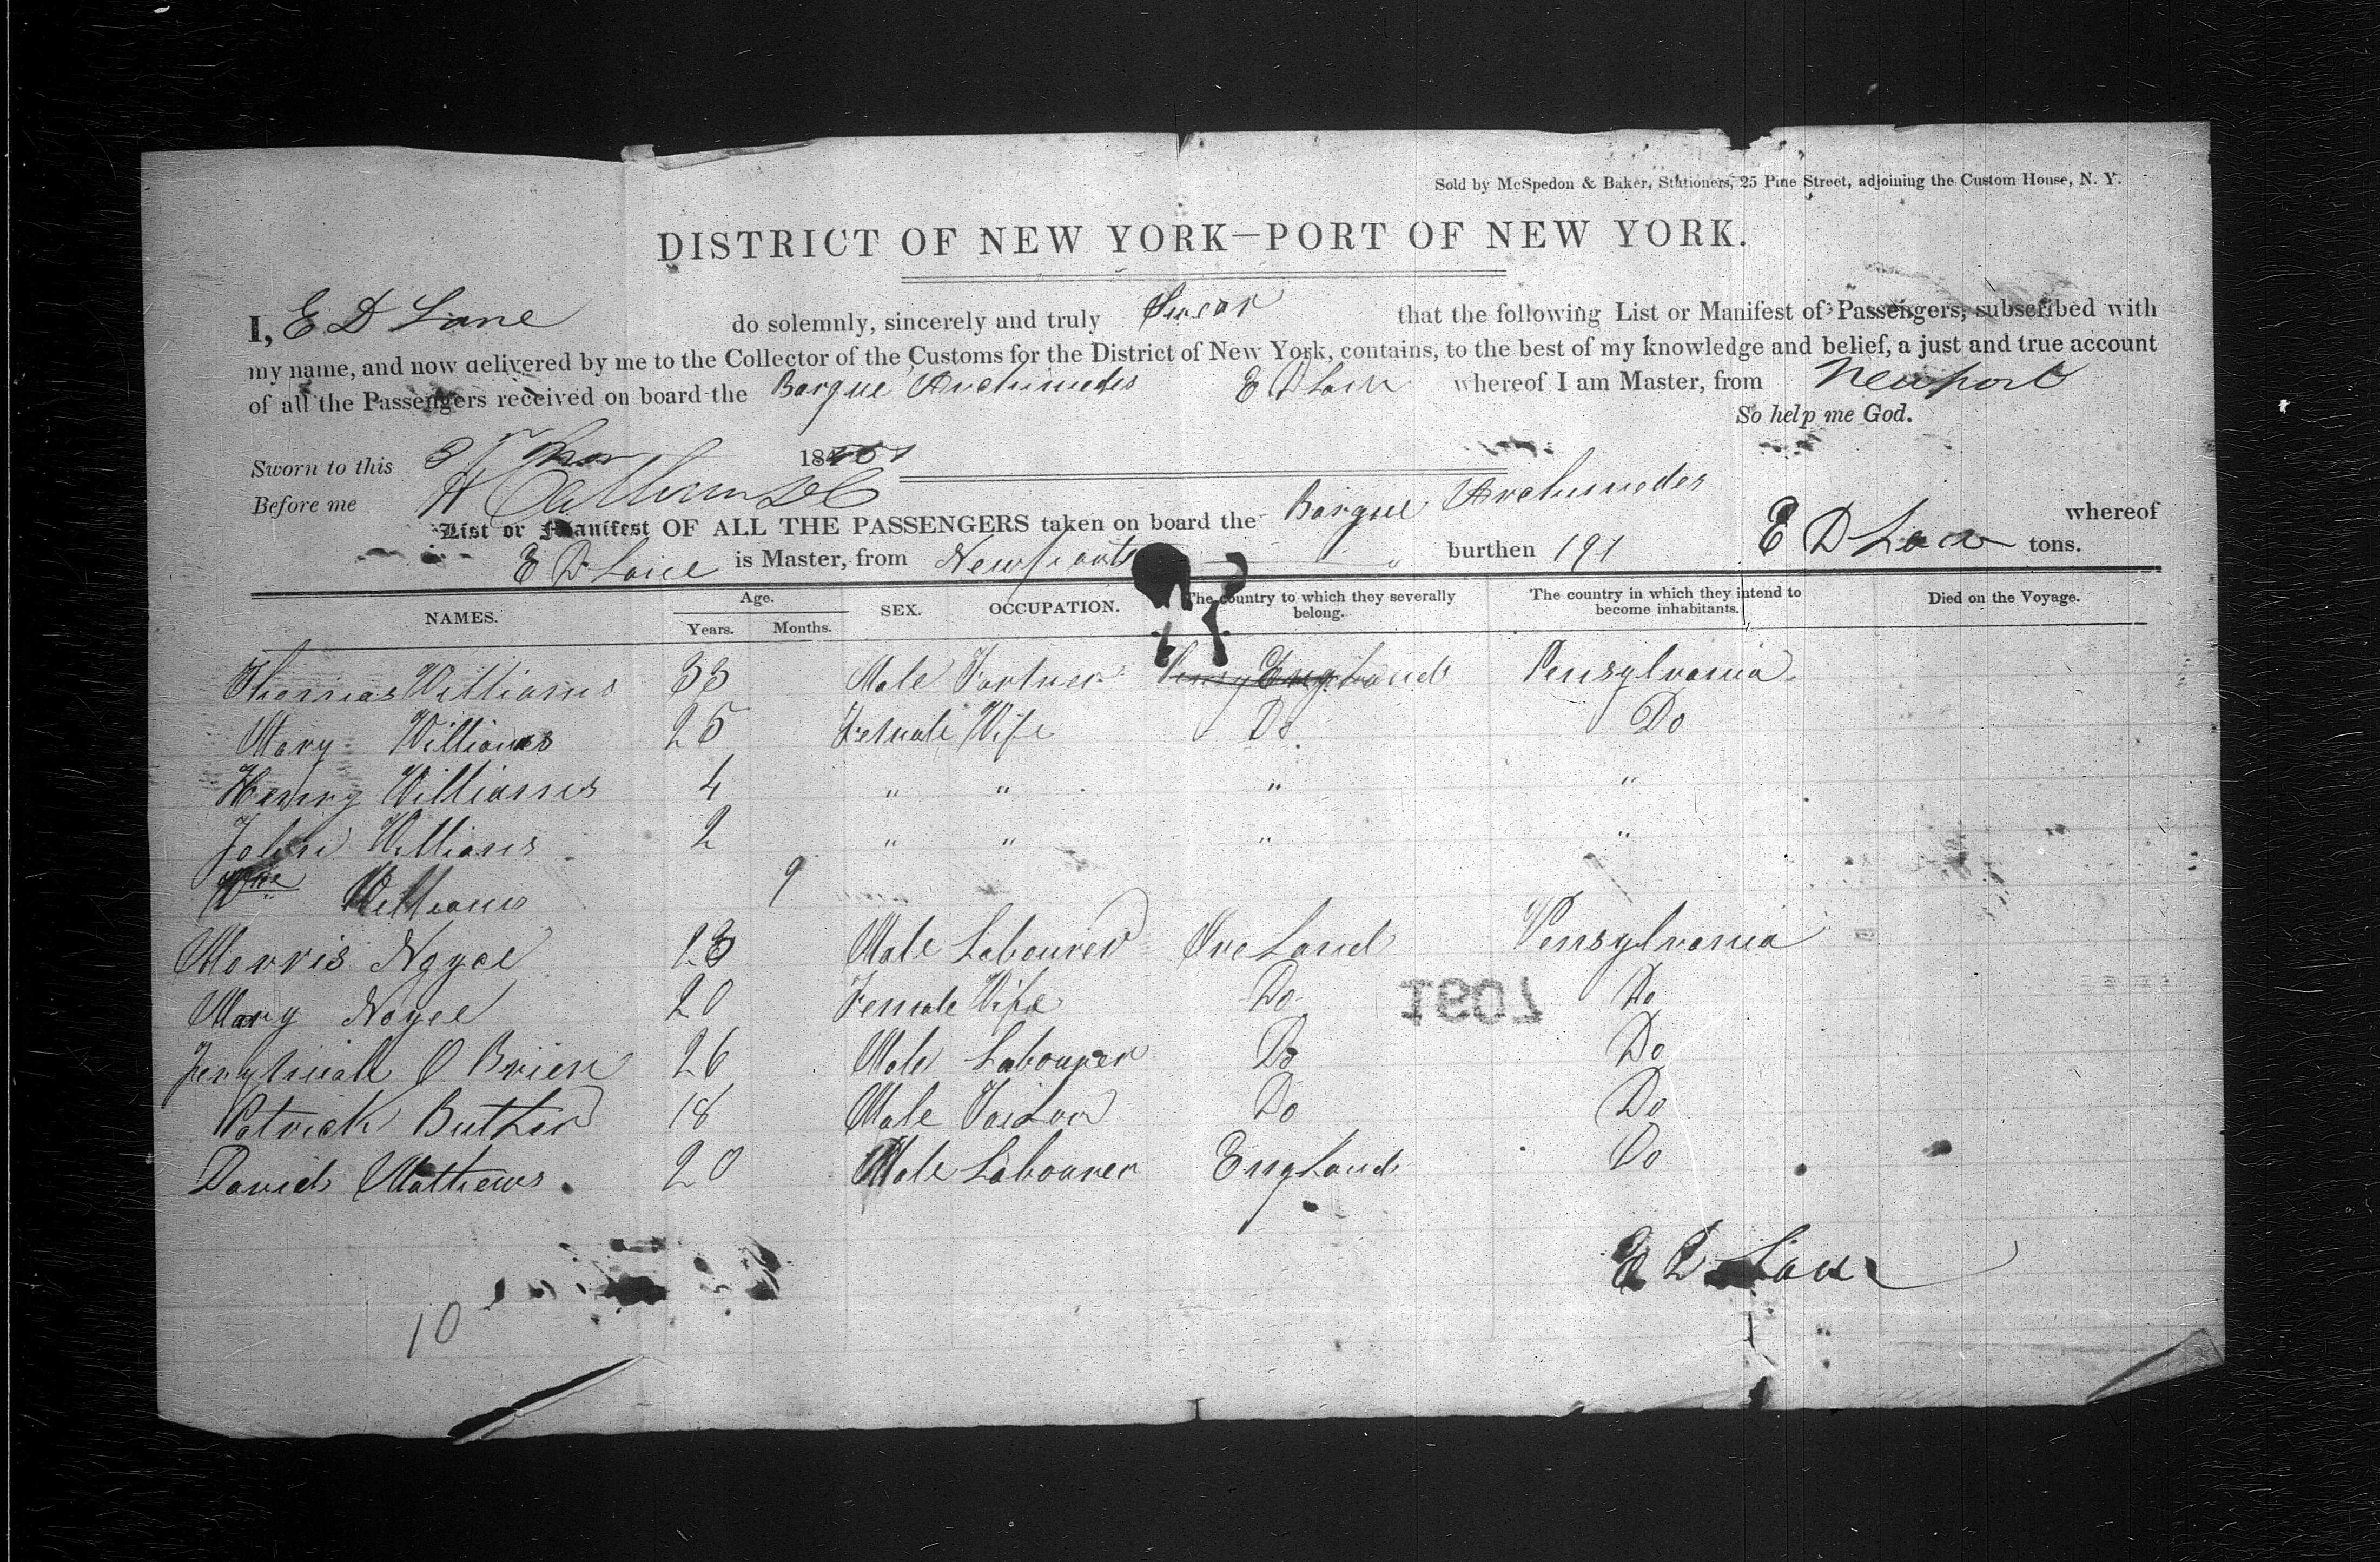 Sold by McSpedon & Baker, Stationers, 25 Pine Street, adjoining the Custom House, N. Y.
DISTRICT OF NEW YORK—PORT OF NEW YORK.
I, E D Lane do solemnly, sincerely and truly Swear that the following List or Manifest of Passengers, subscribed with
my name, and now delivered by me to the Collector of the Customs for the District of New York, contains, to the best of my knowledge and belief, a just and true account
of all the Passengers received on board the Barque Archimedes E D Lane whereof I am Master, from Newport
So help me God.
Sworn to this 18
Before me
List or Manifest OF ALL THE PASSENGERS taken on board the Barque Archimedes E D Lane whereof
E D Lane is Master, from Newport " burthen 191 tons.
NAMES. Age. Years. Months. SEX. OCCUPATION. The country to which they severally belong. The country in which they intend to become inhabitants. Died on the Voyage.
Thomas Williams 33 Male England Pensylvania
Mary Williams 25 Female Wife Do Do
Henry Williams 4 " " " "
John Williams 2 " " " "
Williams 9
Morris Noyce 23 Male Labourer Ireland Pensylvania
Mary Noyce 20 Female Wife Do Do
O Brien 26 Male Labourer Do Do
Patrick Butler 18 Male Do Do
David Mathews 20 Male Labourer England Do
1607
E D Lane
10